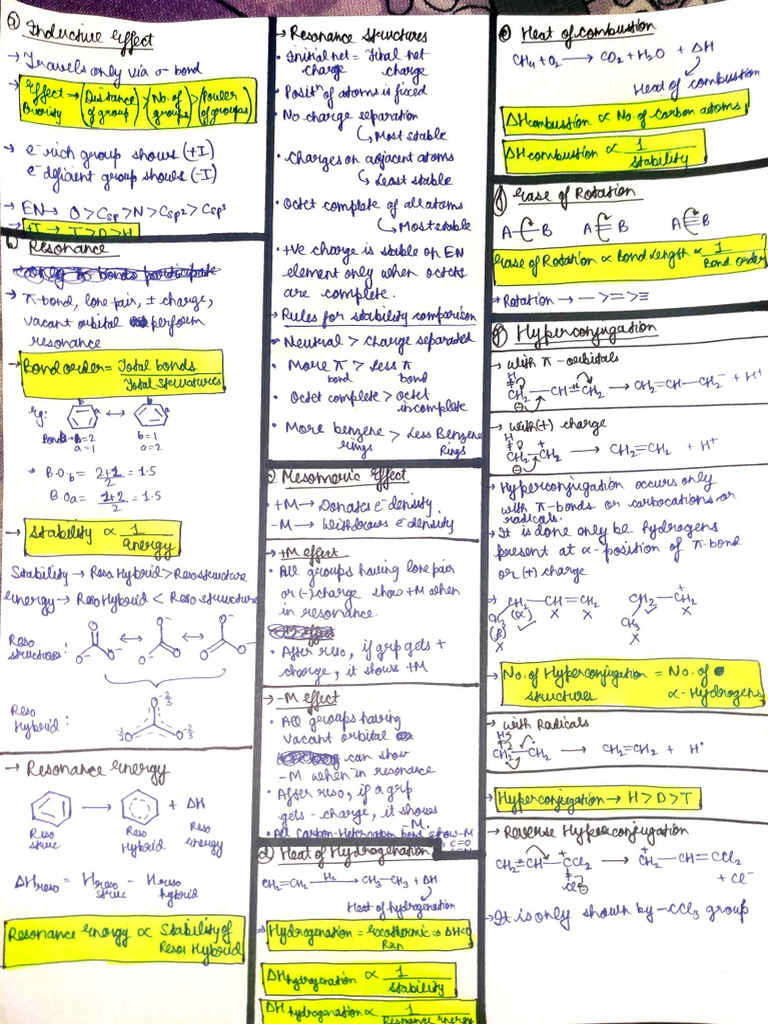 a) Inductive effect
→ Travels only via σ bond
→ Effect → (Distance > (No. of > (Power
Priority of group) groups) of groups)
→ e⁻ rich group shows (+I)
e⁻ dficient group shows (-I)
→ EN → O > Csp > N > Csp² > Csp³
→ +I → T > D > H
b) Resonance
→ π-bond, lone pair, ± charge,
vacant orbital perform
resonance
→ Bond order = Total bonds
Total structures
eg:
b b
a a
Bonds → b=2 b=1
a=1 a=2
• B.O.b = 2+1/2 = 1.5
B.Oa = 1+2/2 = 1.5
→ Stability ∝ 1/energy
Stability → Reso Hybrid > Reso structure
energy → Reso Hybrid < Reso structure
Reso
structures:
O O⁻ O⁻
⁻O O⁻ ↔ ⁻O O ↔ O O⁻
Reso
Hybrid:
O -2/3
-2/3 O O -2/3
→ Resonance energy
⟶ + ΔH
Reso Reso Reso
struc Hybrid energy
ΔHreso = Hreso - Hreso
struc hybrid
Resonance energy ∝ Stability of
Reso Hybrid
→ Resonance structures
• Initial net = Final net
charge charge
• Positⁿ of atoms is fixed
• No charge separation
↳ Most stable
• Charges on adjacent atoms
↳ Least stable
• Octet complete of all atoms
↳ Most stable
• +ve charge is stable on EN
element only when octets
are complete.
→ Rules for stability comparison
• Neutral > charge separated
• More π > Less π
bond bond
• Octet complete > octet
incomplete
• More benzene > Less Benzene
rings Rings
c) Mesomeric effect
+M → Donates e⁻ density
-M → Withdraws e⁻ density
→ +M effect
• All groups having lone pair
or (-) charge show +M when
in resonance.
• After reso, if grp gets +
charge, it shows +M
→ -M effect
• All groups having
vacant orbital
can show
-M when in resonance
• After reso, if a grp
gets - charge, it shows
-M.
• All Carbon-Hetroatom bond show -M
C=O
d) Heat of Hydrogenation
CH₂=CH₂ —H₂→ CH₃-CH₃ + ΔH
Heat of hydrogenation
→ Hydrogenation = exothermic ⇒ ΔH<0
Rxn
ΔHhydrogenation ∝ 1/stability
ΔH hydrogenation ∝ 1/Resonance energy
e) Heat of combustion
CH₄+O₂ → CO₂ + H₂O + ΔH
Heat of combustion
ΔHcombustion ∝ No. of carbon atoms
ΔHcombustion ∝ 1/Stability
f) Ease of Rotation
A-B A=B A≡B
Ease of Rotation ∝ Bond Length ∝ 1/Bond order
→ Rotation → — > = > ≡
g) Hyperconjugation
→ with π-orbitals
H
CH₂—CH=CH₂ → CH₂=CH—CH₂⁻ + H⁺
→ with (+) charge
H
CH₂—CH₂ → CH₂=CH₂ + H⁺
→ Hyperconjugation occurs only
with π-bonds or carbocations or
radicals.
→ It is done only be hydrogens
present at α-position of π-bond
or (+) charge
→ CH₂—CH=CH₂ CH₂—CH₂⁺
CH₃ (α) ✓ X X CH₃ ✓ X
(β) X
X
→ No. of Hyperconjugation = No. of
structures α-Hydrogens
→ with Radicals
H
CH₂—CH₂ → CH₂=CH₂ + H•
→ Hyperconjugation → H > D > T
→ Reverse Hyperconjugation
CH₂=CH—CCl₂ → CH₂⁺—CH=CCl₂
Cl + Cl⁻
→ It is only shown by -CCl₃ group